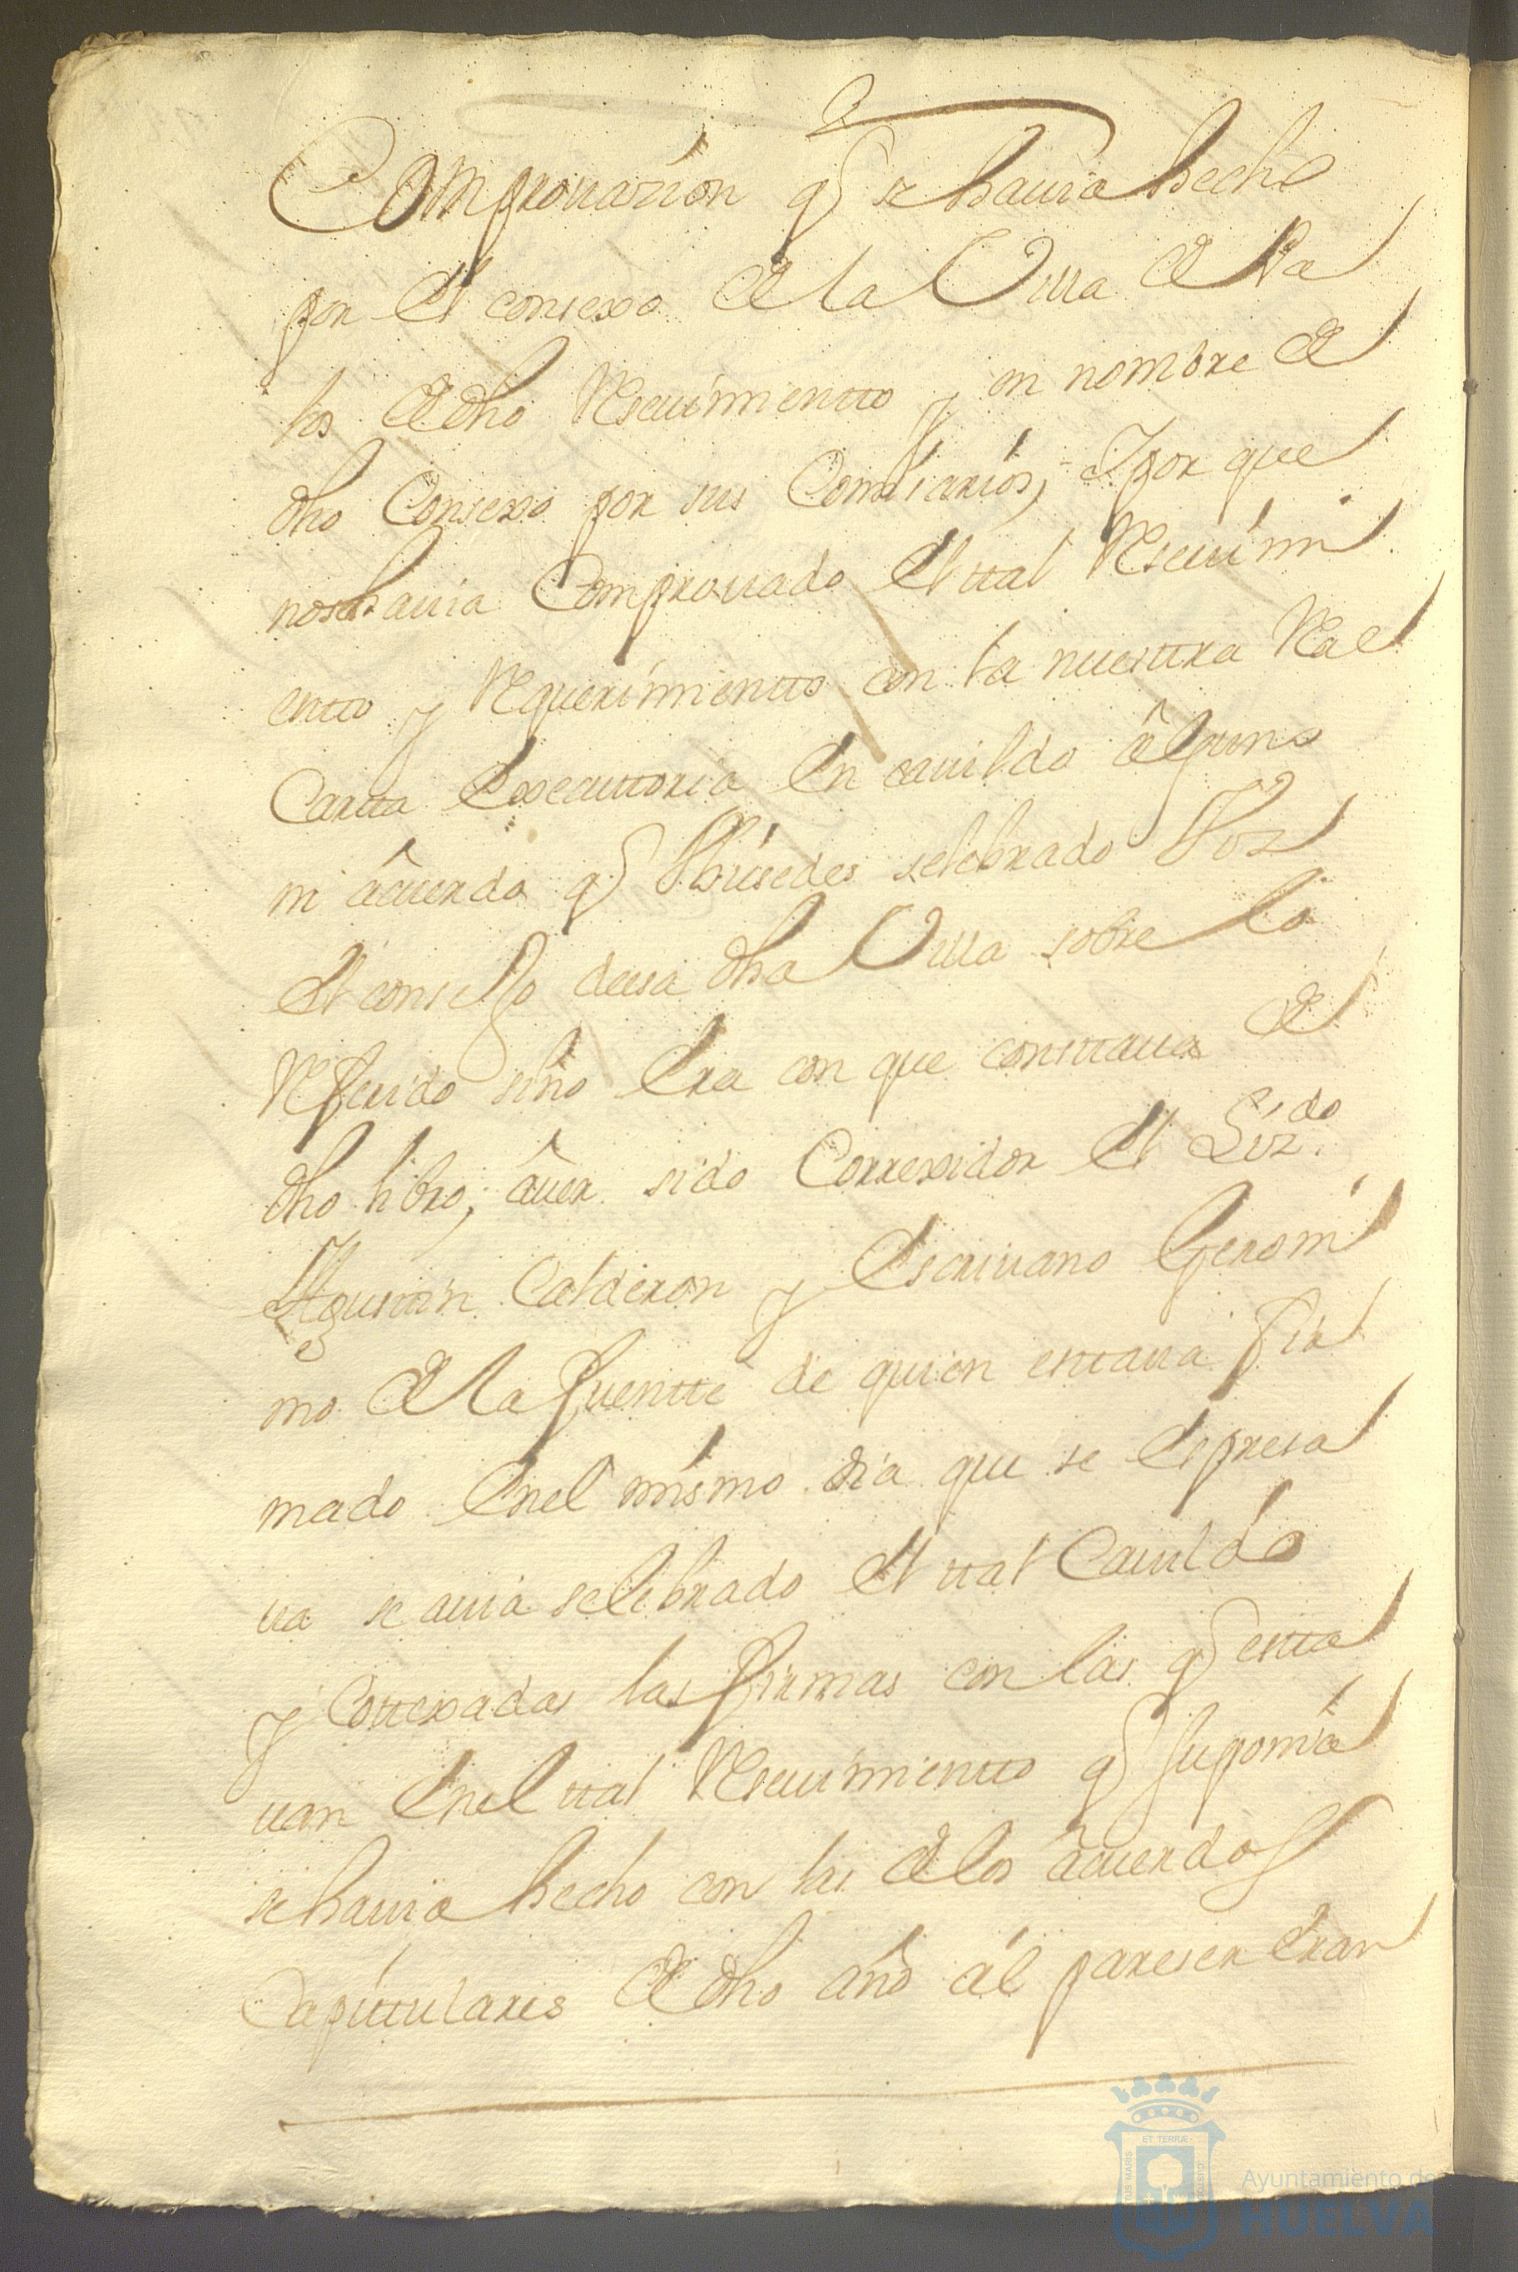 Comprouazion q̃ se hauia hecho
por el consexo de la Villa de Pa
los de dho Reseuimientto y en nombre de
dho Consexo por sus Comisarios, Y por que
nosehauia Comprouado el ttal Reseuimi
entto y Requerimientto con la nuesttra Real
Cartta Executtoria En cauildo âlguno
ni âcuerdo q̃ hubiesedes selebrado Voz
el consejo desa dha Villa sobre lo
Referido sino Era con que consttaua de
dho libro, âuer sido Correxidor el Liz.do
Agusttin Calderon y Escriuano Geroni
mo de la Fuentte de quien esttaua fir
mado Enel mismo dia que se Espresa
ua se auia selebrado el ttal Cauildo
y Cottexadas las firmas con las q̃ estta
uan Enel ttal Reseuimientto q̃ suponia
se hauia hecho con las de los âcuerdos
Capittulares de dho año al pareser Eran
ET TERRÆ
Ayuntamiento de
HUELVA